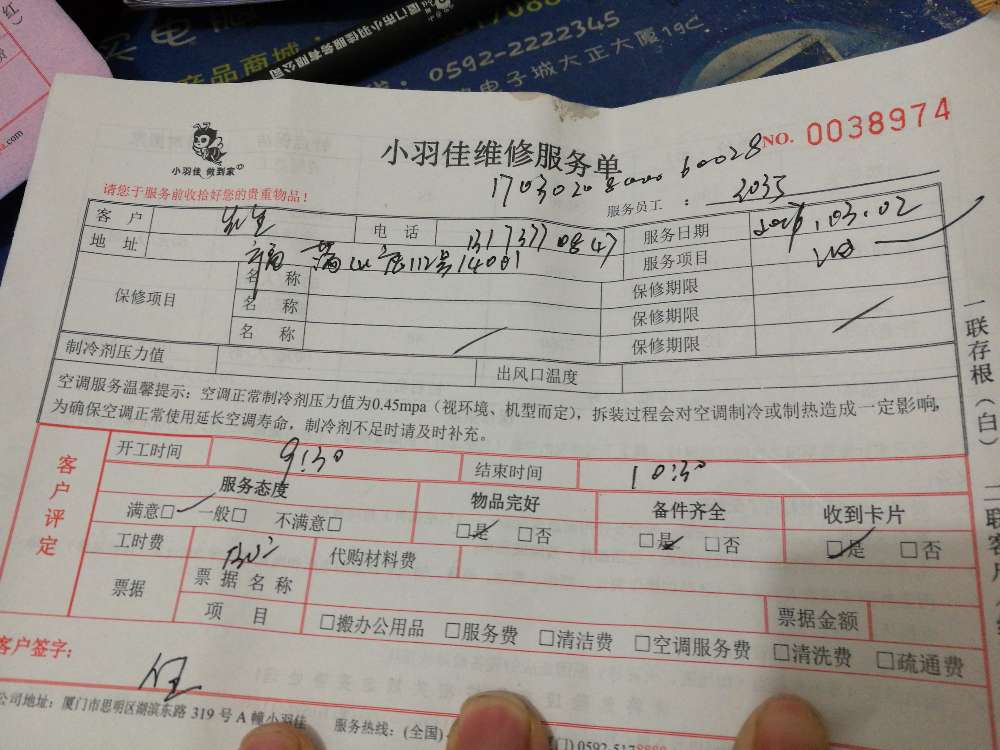 红）
买电
产品商城
1708
厦门市小羽佳服务有限公司
0592-2222345
电子城大正大厦19C
.com
小羽佳 做到家
小羽佳维修服务单
NO. 0038974
17030208000 60028
请您于服务前收拾好您的贵重物品！
服务员工 ： 2035
客 户 电 话 13173770847 服务日期 2017.03.02
地 址 112号14001 服务项目
保修项目 名 称 保修期限
名 称 保修期限
名 称 保修期限
制冷剂压力值 出风口温度
空调服务温馨提示：空调正常制冷剂压力值为0.45mpa（视环境、机型而定），拆装过程会对空调制冷或制热造成一定影响，
为确保空调正常使用延长空调寿命，制冷剂不足时请及时补充。
客户评定
开工时间 9:30 结束时间 10:30
服务态度 物品完好 备件齐全 收到卡片
满意□ 一般□ 不满意□ □是 □否 □是 □否 □是 □否
工时费 代购材料费
票据 票据名称
项 目 □搬办公用品 □服务费 □清洁费 □空调服务费 □清洗费 □疏通费
票据金额
客户签字：
公司地址：厦门市思明区湖滨东路 319 号 A 幢小羽佳 服务热线：(全国) 0592-5178
一联存根（白）二联客户